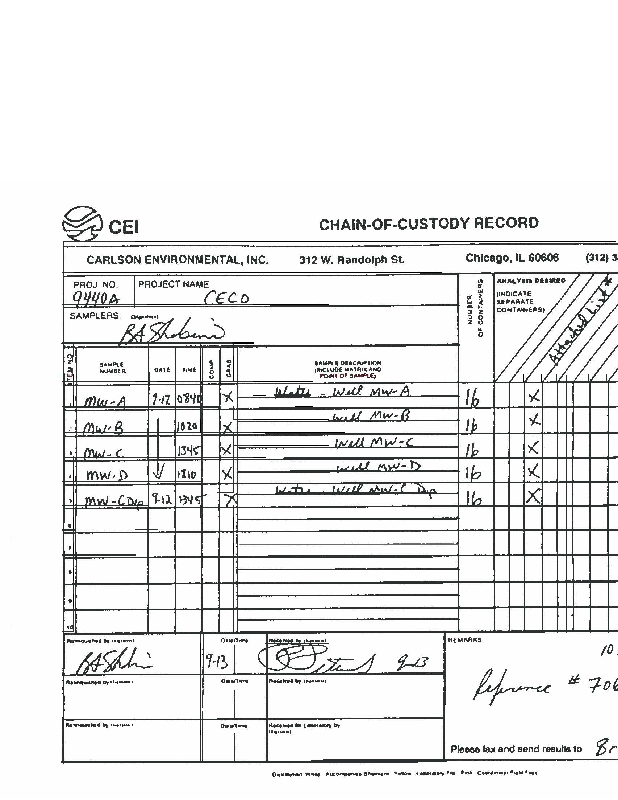 CEI CHAIN-OF-CUSTODY RECORD
CARLSON ENVIRONMENTAL, INC. 312 W. Randolph St. Chicago, IL 60606 (312) 3
PROJ NO. PROJECT NAME
9440A CECO
SAMPLERS (Signature)
NUMBER OF CONTAINERS
ANALYSIS DESIRED
(INDICATE
SEPARATE
CONTAINERS)
Attached List *
ITEM NO. SAMPLE NUMBER DATE TIME COMP GRAB SAMPLE DESCRIPTION (INCLUDE MATRIX AND POINT OF SAMPLE)
1 MW-A 9-12 0840 X Water - Well MW-A 16 X
2 MW-B 1020 X Well MW-B 16 X
3 MW-C 1345 X Well MW-C 16 X
4 MW-D 1810 X Well MW-D 16 X
5 MW-C Dup 9-12 1345 X Water Well MW-C Dup 16 X
6
7
8
9
10
Relinquished by (Signature) Date/Time Received by (Signature) REMARKS
9-13 9-13 10
Relinquished by (Signature) Date/Time Received by (Signature)
Reference # 706
Relinquished by (Signature) Date/Time Received for Laboratory by (Signature)
Please fax and send results to Br